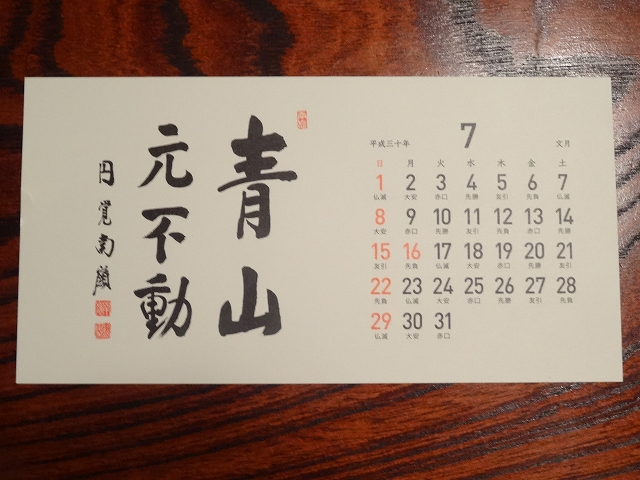 青山
元不動
円覚南嶺
平成三十年 7 文月
日 月 火 水 木 金 土
1 2 3 4 5 6 7
仏滅 大安 赤口 先勝 友引 先負 仏滅
8 9 10 11 12 13 14
大安 赤口 先勝 友引 先負 赤口 先勝
15 16 17 18 19 20 21
友引 先負 仏滅 大安 赤口 先勝 友引
22 23 24 25 26 27 28
先負 仏滅 大安 赤口 先勝 友引 先負
29 30 31
仏滅 大安 赤口